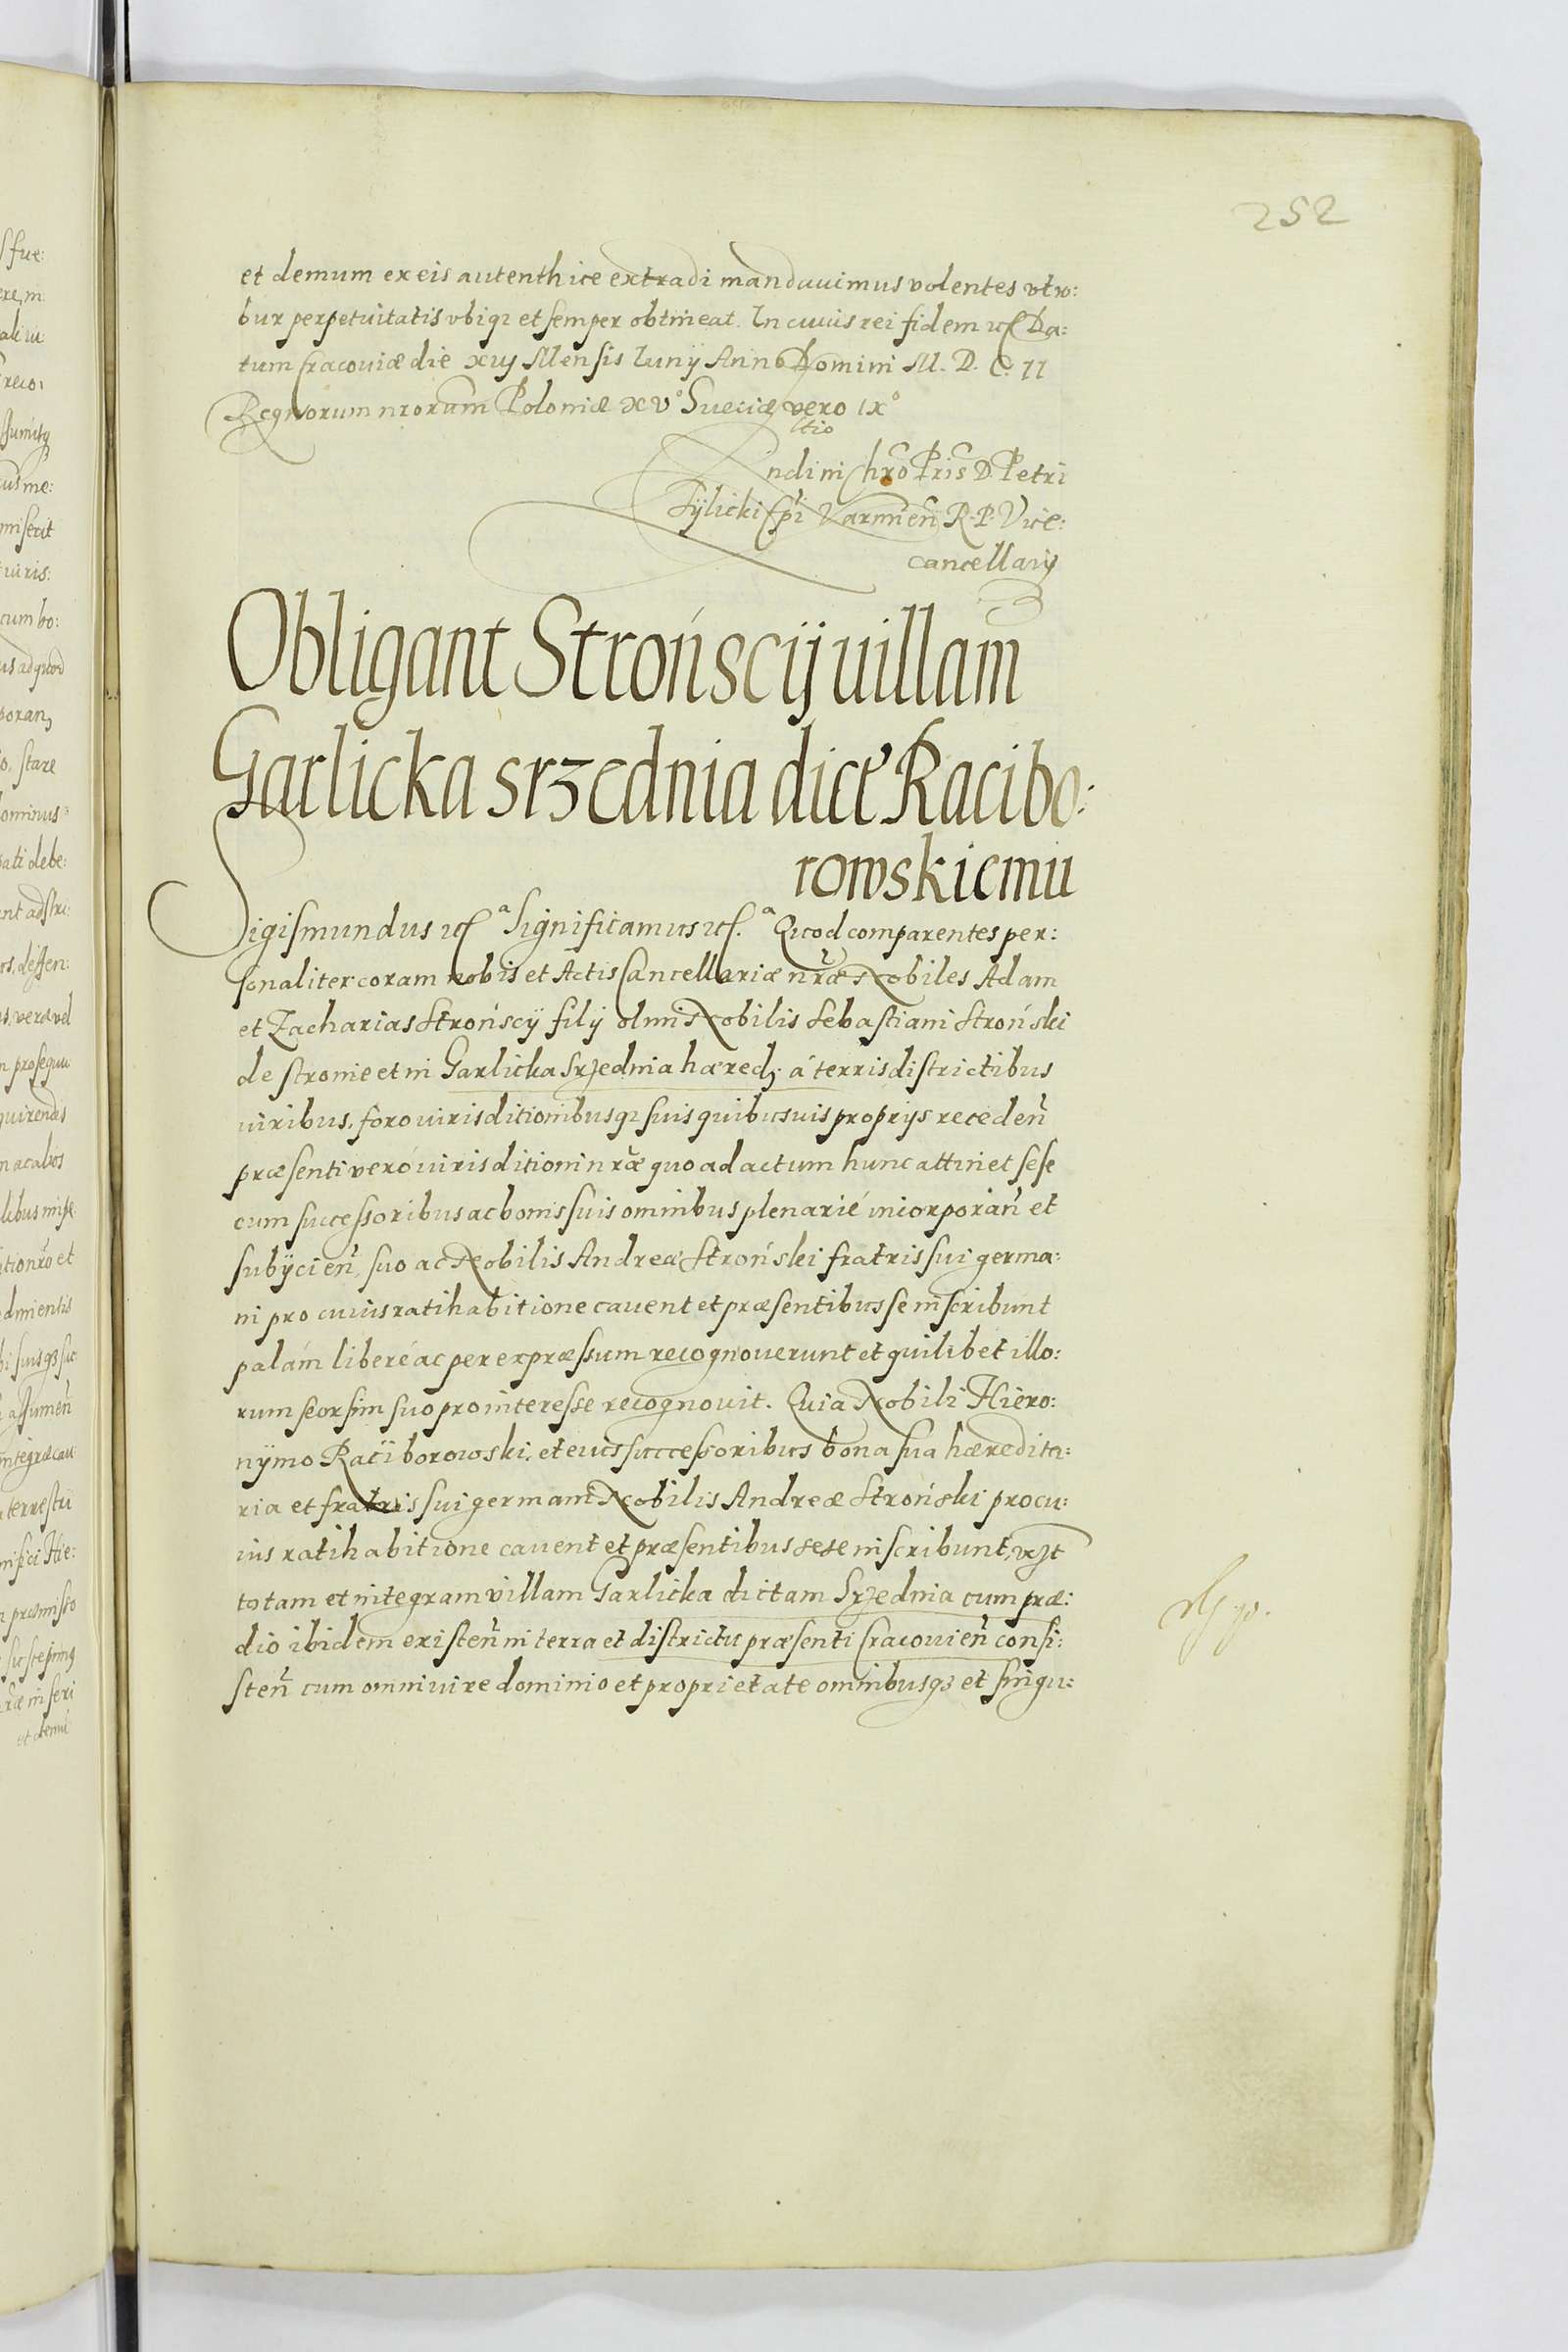 252
et demum ex eis autenthice extradi mandauimus volentes vt ro:
bur perpetuitatis vbiqꝫ et semper obtineat. In cuius rei fidem ꝛc̃ Da:
tum Cracouiæ die xvij Mensis Iunij Anno Domini M. D. C. II
Regnorum nrorum Poloniæ XV° Sueciæ vero IX°
ltio
R̃ndi in Chro Pris D. Petri
Tÿlicki Epi Varmien̄ R. P. Vice:
cancellarij
Obligant Strońscÿ uillam
Garlicka srzednia dict' Racibo:
rowskiemu
Sigismundus ꝛc̃ ᵃ Significamus ꝛc̃. ᵃ Quod comparentes per:
sonaliter coram nobis et Actis Cancellariæ nr̃æ Nobiles Adam
et Zacharias Strońscÿ filÿ olim Nobilis Sebastiani Stroński
de stronie et in Garlicka Srzednia hæredꝫ. á terris districtibus
iuribus, foro iurisditionibusqꝫ suis quibusuis proprÿs receden̄
præsenti veró iurisditioni nr̃æ quo ad actum hunc attinet sese
cum successoribus ac bonis suis omnibus plenarié incorporan̄ et
subÿcien̄, suo ac Nobilis Andreæ Stroński fratris sui germa:
ni pro cuius ratihabitione cauent et præsentibus se inscribunt
palám liberé ac per expræssum recognouerunt et quilibet illo:
rum seorsim suo pro interesse recognouit. Quia Nobili Hiero:
nÿmo Raciborowski, et eius successoribus bona sua hæredita:
ria et fratris sui germani Nobilis Andreæ Stroński pro cu:
ius ratihabitione cauent et præsentibus sese inscribunt, vꝫt
totam et integram villam Garlicka dictam Srzednia cum præ:
dio ibidem existen̄ in terra et districtu præsenti Cracouien̄ consi:
sten̄ cum omni iure dominio et proprietate omnibusqꝫ et singu: